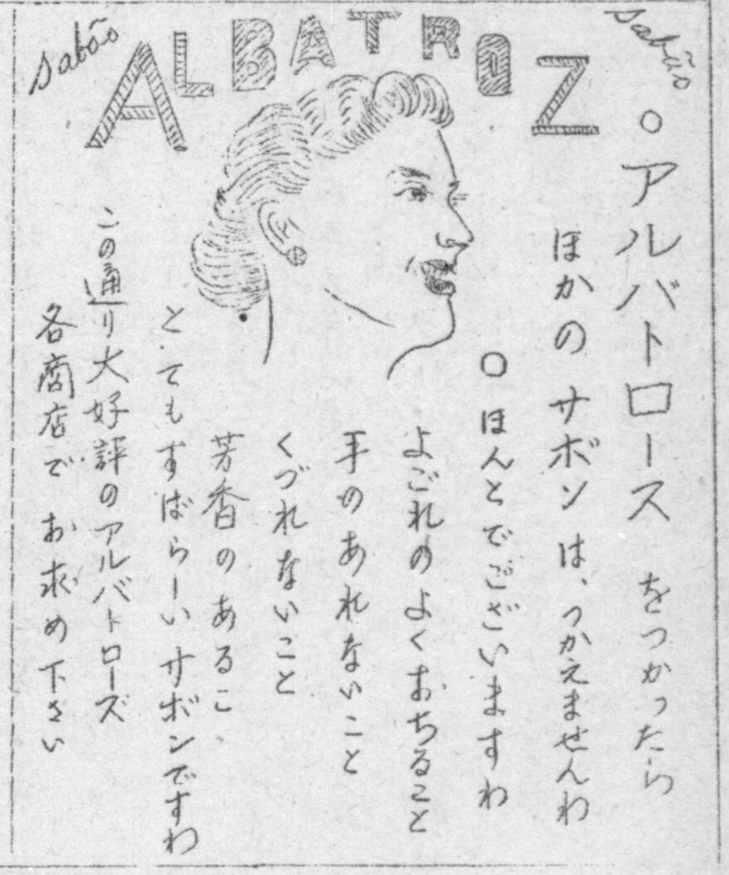 sabão ALBATROZ sabão
○アルバトロース をつかったら
ほかの サボン は、つかえませんわ
○ほんとでございますわ
よごれのよくおちること
手のあれないこと
くづれないこと
芳香のあるこ、
とてもすばらーいサボンですわ
この通り大好評のアルバトローズ
各商店で お求め下さい